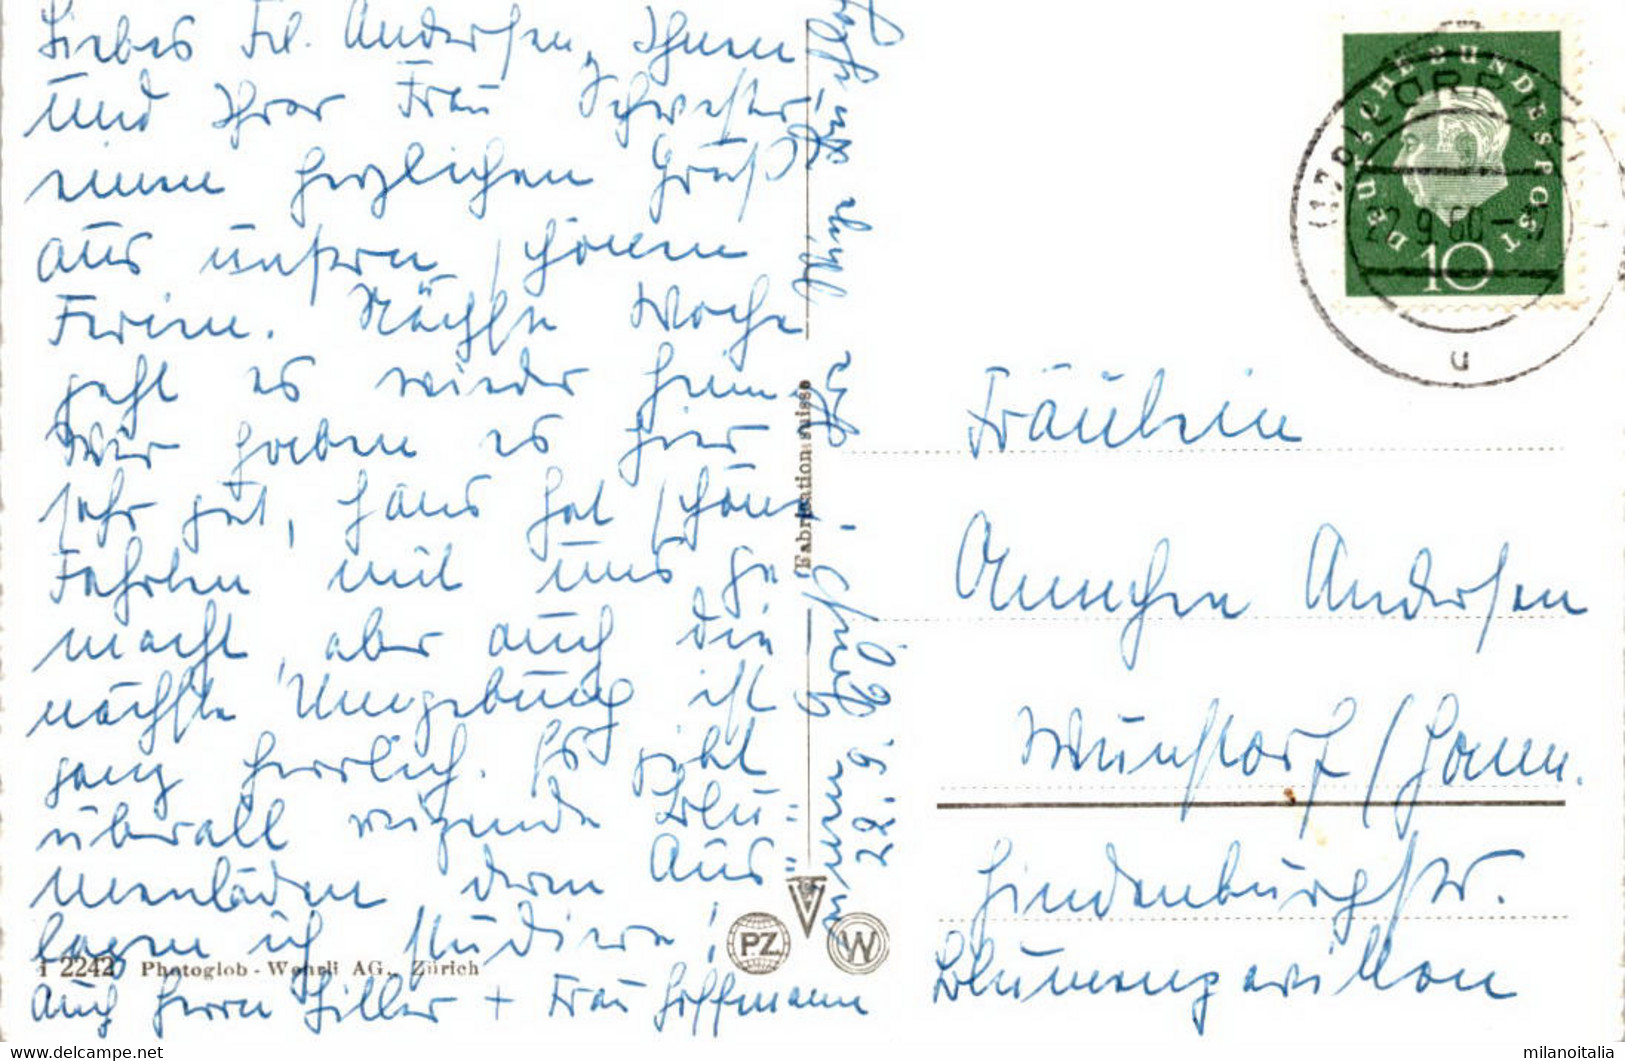 Liebes Frl. Andersen, Ihnen
und Ihrer Frau Schwester
einen herzlichen Gruß
aus unsern schönen
Ferien. Nächste Woche
geht es wieder heim.
Wir haben es hier
sehr gut, Hans hat schöne
Fahrten mit uns ge-
macht, aber auch die
nächste Umgebung ist
ganz herrlich. Es gibt
überall reizende Blu-
menläden, deren Aus-
lagen ich studiere!
auch Herrn Hiller + Frau Hoffmann
22.9.
Fabrication suisse
I 2242 Photoglob - Wehrli AG., Zürich
P.Z.
W
DEUTSCHE BUNDESPOST
10
22.9.60-17
u
Fräulein
Annchen Andersen
Wunstorf / Hann.
Hindenburgstr.
Blumenpavillon
milanoitalia
www.delcampe.net